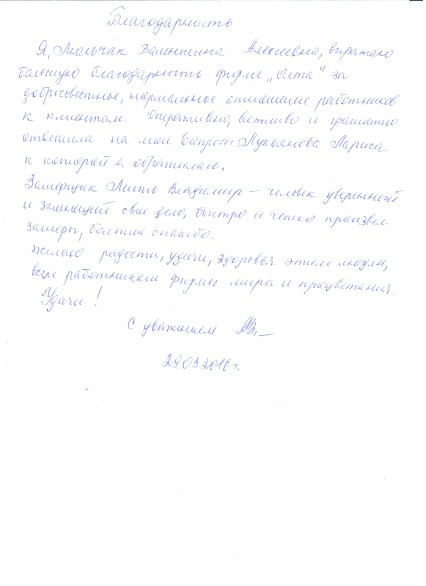 Благодарность
Я, Люльчак Валентина Алексеевна, выражаю
большую благодарность фирме „Олта" за
добросовестные, нормальное отношение работников
к клиентам. Оперативно, вежливо и грамотно
ответила на мои вопросы Лукьянова Лариса
к которой я обратилась.
Замерщик Лить Владимир – человек уверенный
и знающий свое дело, быстро и четко произвел
замеры, большое спасибо.
Желаю радости, удачи, здоровья этим людям,
всем работникам фирмы мира и процветания.
Удачи!
С уважением
29.03.2016 г.